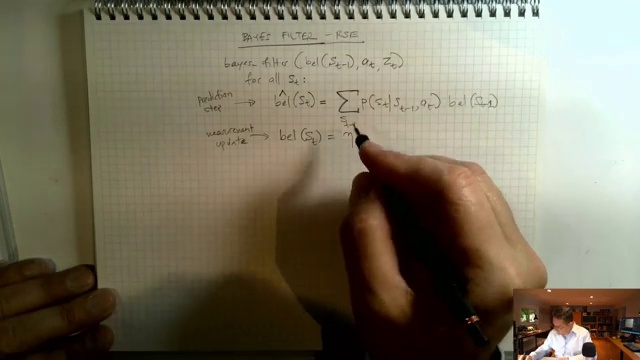 BAYES FILTER - RSE
bayes filter (bel(St-1), at, Zt)
for all St:
Prediction step → bel^(St) = ∑ St-1 P(St | St-1, at) bel(St-1)
measurement update → bel(St) = η